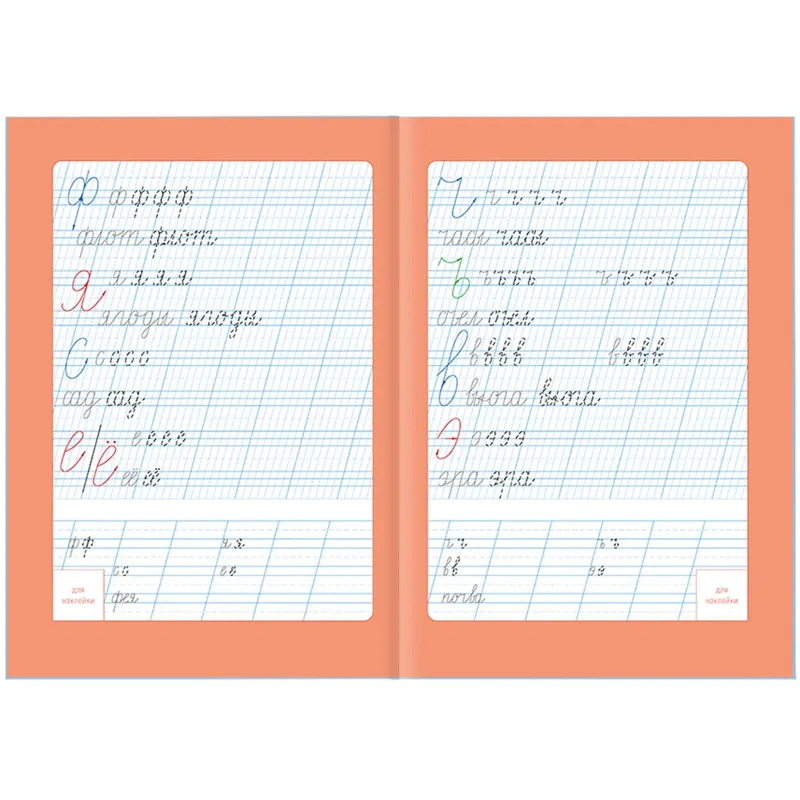 ф ф ф ф ф
флот флот
я я я я я
ягоды ягоды
с с с с с
сад сад
е/ё е е е е
её её
ф ф я я
с с е е
для
наклейки
фея
ч ч ч ч ч
часы часы
ъ ъ ъ ъ ъ ъ ъ ъ ъ
съел съел
в в в в в в в в в
вьюга вьюга
э э э э э
эра эра
ч ч ъ ъ
в в э э
почва
для
наклейки